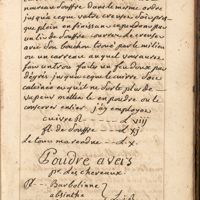 nouveau souffre dans le meme ordre
jusqua ceque votre creuset soit presque
plein en finissant cependant par
un lit de souffre. couvrez le creuset
avec son bouchon troué par le milieu
ou un carreau auquel vous aurez
fait un trou faites un feu doux par
dégrés jusqua ceque le cuivre soit
calciné et quil ne sorte plus de
vapeur mettez le en poudre ou le
conservez entier. j'ay employé
cuivre R — L viij
fl. de souffre — L xj
le tout m'a rendu — L x.
Poudre a vers
pr. des chevaux
Barbotinne
absinthe